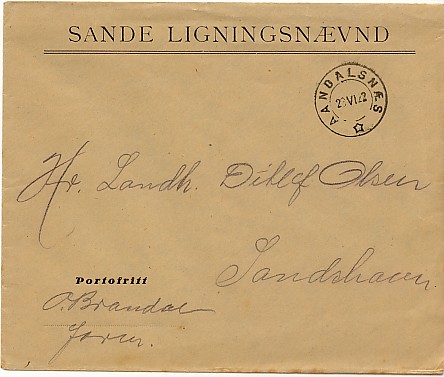 SANDE LIGNINGSNÆVND
AANDALSNÆS
2 VI 22
Hr. Landh. Ditlef Olsen
Sandshavn.
Portofritt
O. Brandal
form.